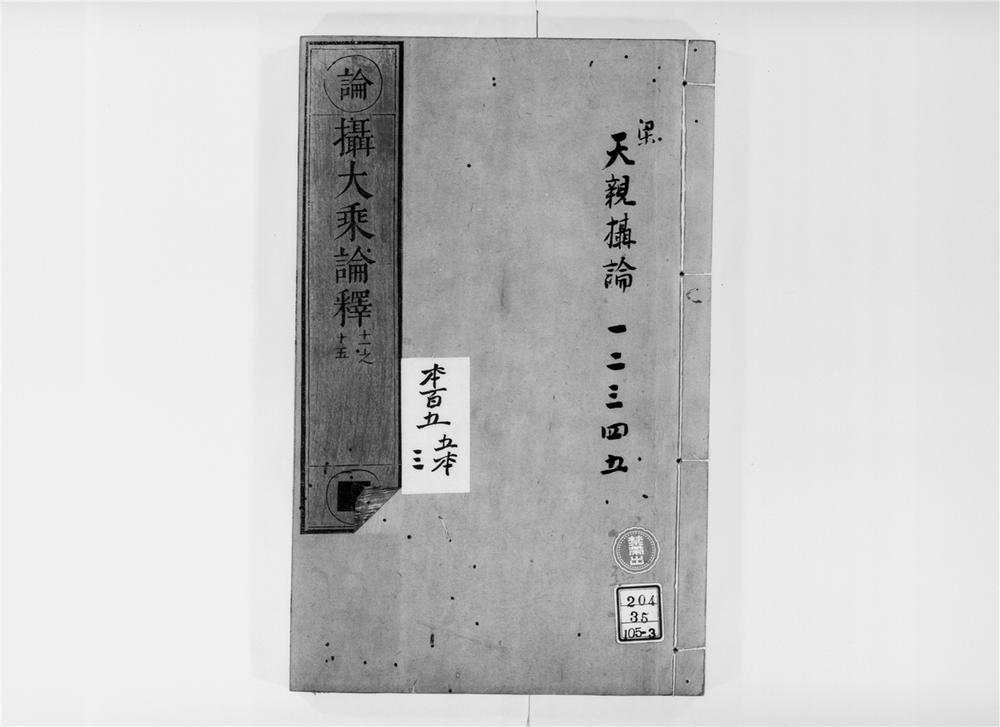 梁
天親攝論 一二三四五
論
攝大乘論釋
十一之
十五
本百五
五本
三
禁帶出
204
35
105-3